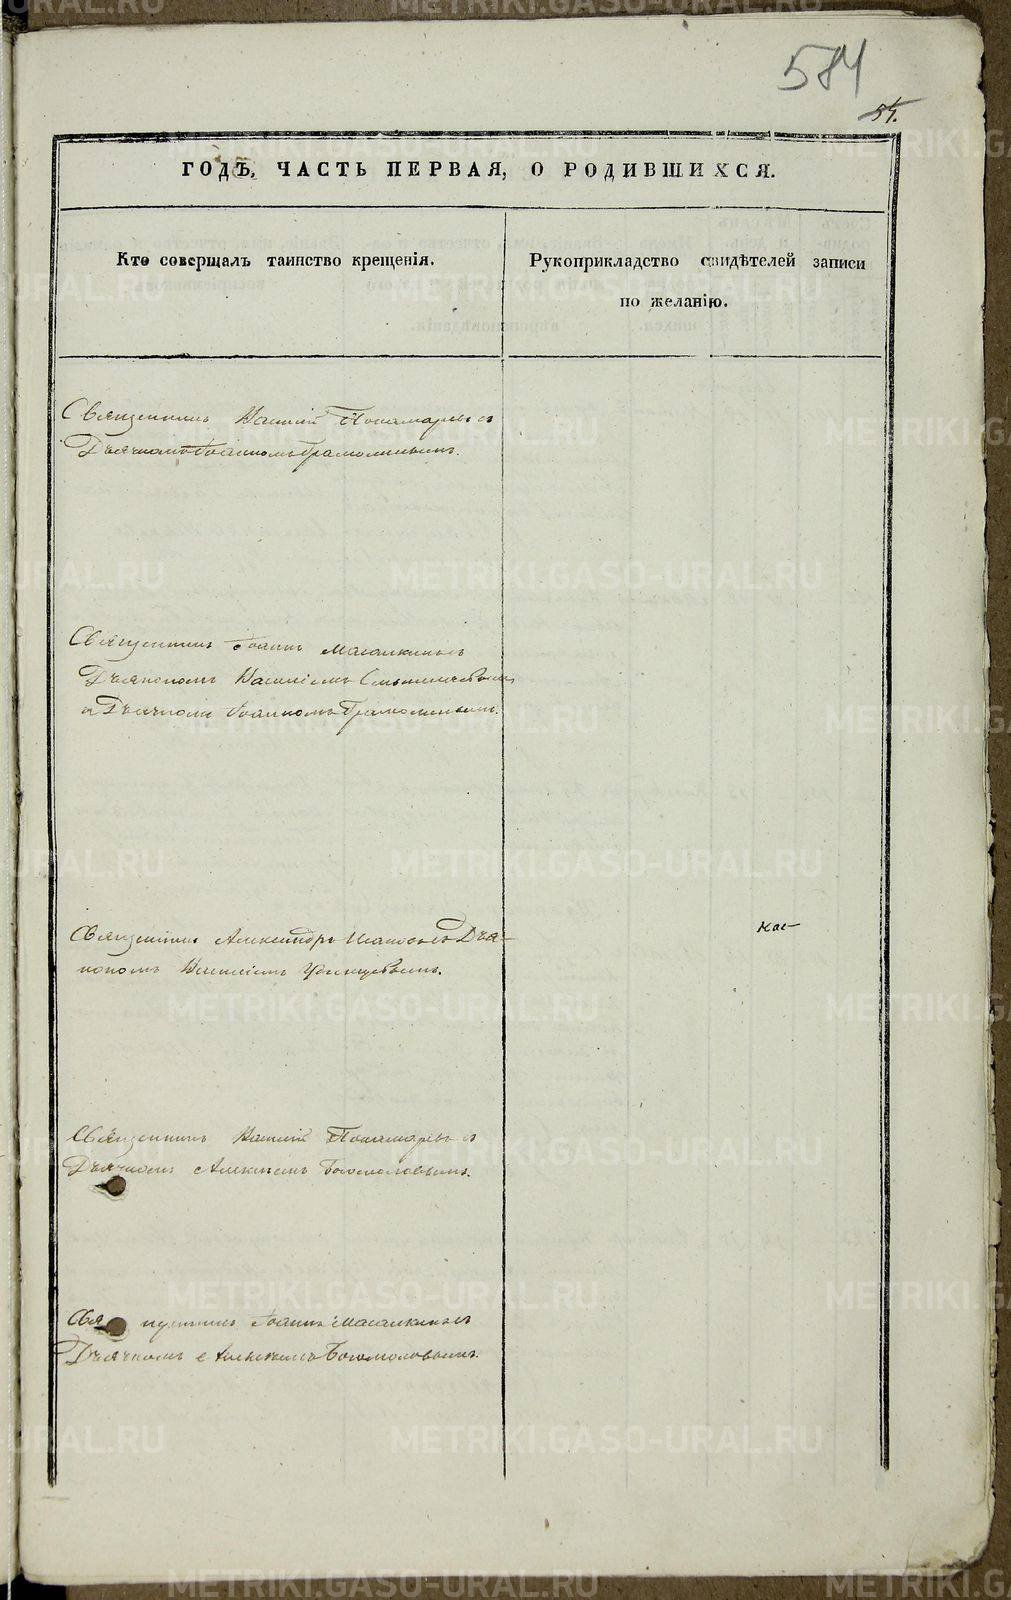 584
54.
ГОДЪ, ЧАСТЬ ПЕРВАЯ, О РОДИВШИХСЯ.
Кто совершалъ таинство крещенія.
Рукоприкладство свидѣтелей записи
по желанію.
Священникъ Василій Понамаревъ съ
Дьячкомъ Іоанномъ Грамолинымъ.
Священникъ Іоаннъ Масалкинъ съ
Дьякономъ Василіемъ
и Дьячкомъ Іоанномъ Грамолинымъ.
Священникъ Александръ Ивановъ съ Дья-
кономъ Василіемъ
Священникъ Василій Понамаревъ съ
Дьячкомъ Алексѣемъ Богомоловымъ.
Священникъ Іоаннъ Масалкинъ съ
Дьячкомъ Алексѣемъ Богомоловымъ.
METRIKI.GASO-URAL.RU